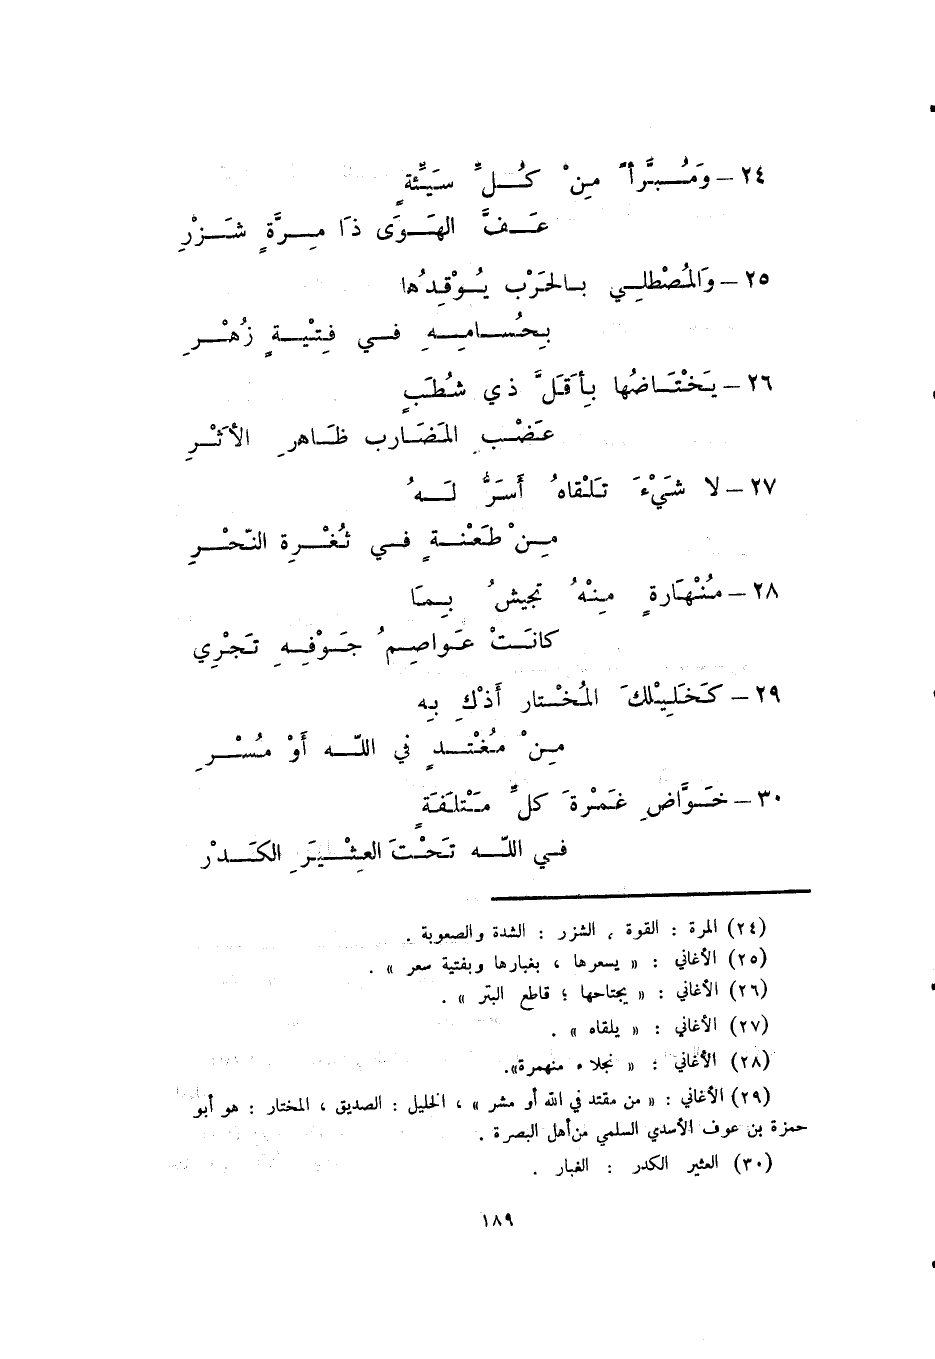 ٢٤ – وَمُبَرَّأً مِنْ كُلِّ سَيِّئَةٍ
عَفَّ الهَوَى ذَا مِرَّةٍ شَزْرِ
٢٥ – وَالمُصْطلِي بالحَرْبِ يُوْقِدُها
بِحُسامِهِ في فِتْيةٍ زُهْرِ
٢٦ – يَخْتَاضُها بِأَقَلَّ ذي شُطَبٍ
عَضْبِ المَضَارب ظَاهرِ الأَثْرِ
٢٧ – لا شَيْءَ تَلْقاهُ أَسَرُّ لَهُ
مِنْ طَعْنةٍ في ثُغْرةِ النّحْرِ
٢٨ – مُنْهَارةٍ مِنْهُ تجيشُ بِمَا
كانَتْ عَواصِمُ جَوْفِهِ تَجْرِي
٢٩ – كَخَلِيْلكَ المُخْتار أَذْكِ بِه
مِنْ مُغْتدٍ في اللّه أَوْ مُسْرِ
٣٠ – خَوَّاضِ غَمْرةَ كلِّ مَتْلَفَةٍ
في اللّه تَحْتَ العِشْيَرِ الكَدْرِ
(٢٤) المرة : القوة ، الشزر : الشدة والصعوبة .
(٢٥) الأغاني : « يسعرها ، بغبارها وبفتية سعر » .
(٢٦) الأغاني : « يجتاحها ؛ قاطع البتر » .
(٢٧) الأغاني : « يلقاه » .
(٢٨) الأغاني : « نجلاء منهمرة».
(٢٩) الأغاني : « من مقتد في الله أو مشر » ، الخليل : الصديق ، المختار : هو أبو
حمزة بن عوف الأسدي السلمي من أهل البصرة .
(٣٠) العثير الكدر : الغبار .
١٨٩